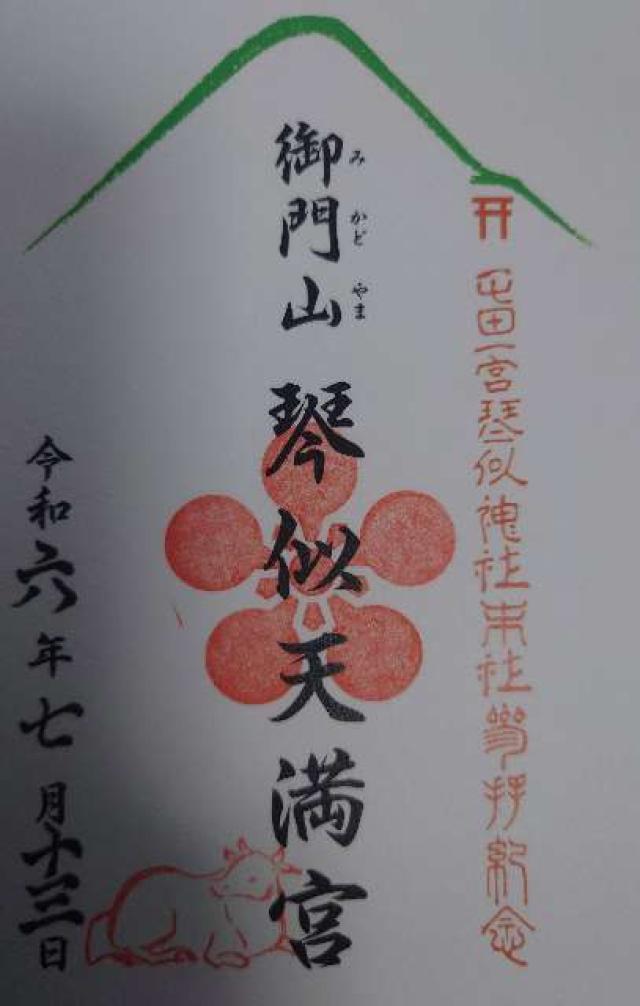 屯田一宮琴似神社末社参拝紀念
御門山 琴似天満宮
みかどやま
令和六年七月十三日